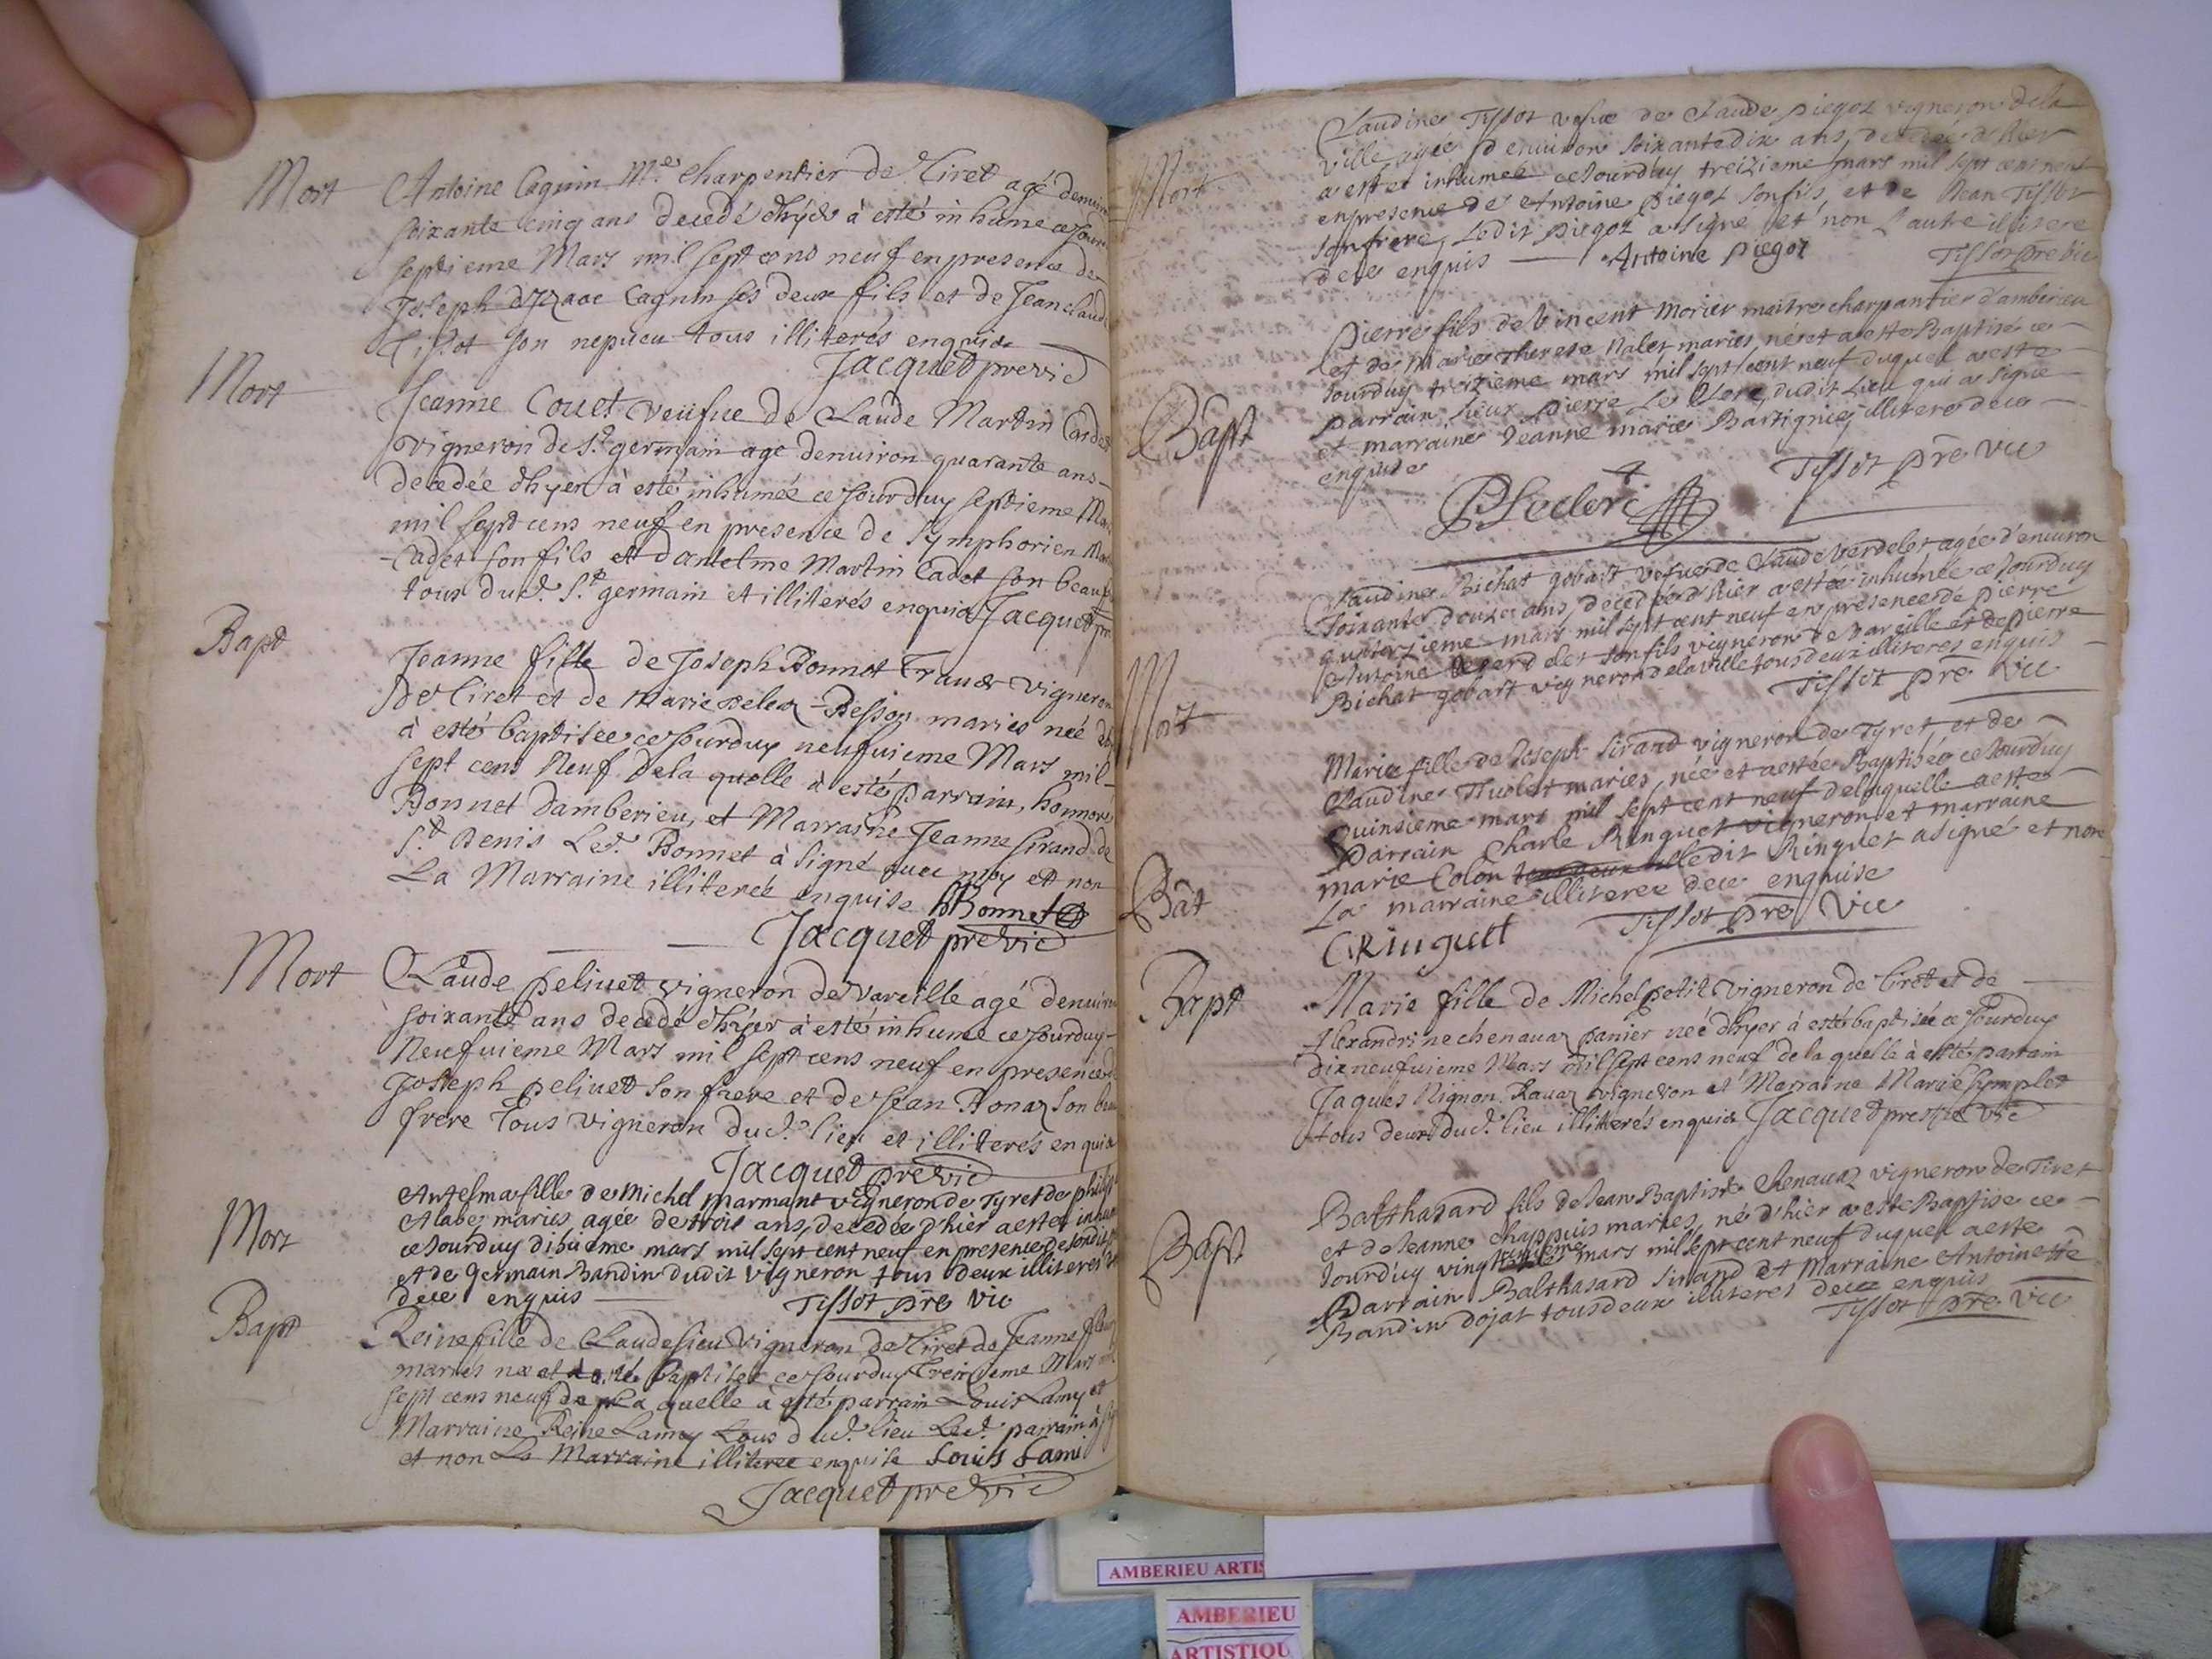 Mort
Antoine Cagnin Me charpentier de Tiret agé denuiron
soixante cinq ans decedé dhyer à esté inhumé ce jour
septieme Mars mil sept cens neuf en presence de
Joseph et Izaac Cagnin ses deux fils et de Jean claude
Tissot son nepueu tous illiterés enquis
Jacquet pre vic
Mort
Jeanne Couet veüfue de Claude Martin Cadet
vigneron de St germain age denuiron quarante ans
decedée dhyer à esté inhumée ce jourduy septieme Mars
mil sept cens neuf en presence de Symphorien
Cadet son fils et dantelme Martin Cadet son beau
tous dud. St germain et illiterés enquis Jacquet pr
Bapt
Jeanne fille de Joseph Bonnet vigneron
de Tiret et de Marie Besson maries née
à esté baptisée ce jourduy neufuieme Mars mil
sept cens Neuf de la quelle à esté parrain, honnoré
Bonnet damberieu, et Marraine Jeanne Sirand de
St Denis Led. Bonnet à signé auec moy et non
La Marraine illiterée enquise hBonnet
Jacquet pre vic
Mort
Claude peliuet vigneron de Vareille agé denuiron
soixante ans decedé dhyer à esté inhumé ce jourduy
Neufuieme Mars mil sept cens neuf en presence de
Joseph peliuet son frere et de Jean Bonaz son beau
frere tous vigneron dud. lieu et illiterés enquis
Jacquet pre vic
Mort
Antelma fille de Michel Marmant vigneron de Tyret de
maries, agée de trois ans, decedée d'hier a esté
ce jourduy dixieme mars mil sept cent neuf en presence de
et de germain Bandin dudit vigneron tous deux illiteres
dece enquis Tissot pre vic
Bapt
Reine fille de Claude Sieu vigneron de Tiret de Jeanne
maries née et a esté baptisée ce jourduy treizieme Mars
sept cens neuf de la quelle à esté parrain Louis Lamy et
Marraine Reine Lamy tous dud. lieu Led. parrain à
et non La Marraine illiteree enquise Louis Lami
Jacquet pre vic
Mort
Claudine Tissot vefue de Claude Piegoz vigneron de la
ville agée d'enuiron soixante dix ans, decedée d'hier
a esté inhumée ce jourduy treizieme mars mil sept cens neuf
en presence de Antoine Piegoz son fils et de Jean Tissot
son frere, Ledit Piegoz a signé et non l'autre illitere
dece enquis Antoine Piegoz Tissot pre vic
Bapt
Pierre fils de Vincent Morier maitre charpantier d'amberieu
et de Marie Therese Nalet maries né et a esté Baptisé ce
jourduy treizieme mars mil sept cent neuf duquel a esté
parrain sieur Pierre Le Clerc dudit Lieu qui a signé
et marraine Jeanne marie Bartignie, illitere dece
enquise Tissot pre vic
PLeclerc
Mort
Claudine Bichat gobart vefue de Claude Verdelet agée d'enuiron
soixante douze ans, decedée d'hier a estée inhumée ce jourduy
quatorzieme mars mil sept cent neuf en presence de Pierre
Antoine Verdelet son fils vigneron de Vareille et de Pierre
Bichat gobart vigneron de la ville tous deux illiteres enquis
Tissot pre vic
Bat
Marie fille de Joseph Sirand vigneron de Tyret et de
Claudine Thuelet maries, née et a estée Baptisée ce jourduy
quinsieme mars mil sept cent neuf de laquelle a esté
parrain Charle Ringuet vigneron et marraine
marie Colon tous deux ledit Ringuet a signé et non
La marraine illiteree dece enquise
CRinguet Tissot pre vic
Bapt
Marie fille de Michel petit vigneron de Tiret et de
Alexandrine chenauaz panier née dhyer à esté baptisée ce jourduy
dixneufuieme Mars mil sept cens neuf de la quelle à esté parrain
Jaques Nignon Rauaz vigneron et Marraine Marie Symplet
tous deux dud. lieu illiterés enquis Jacquet prestre vic
Bapt
Balthasard fils de Jean Baptiste Chenauaz vigneron de Tiret
et de Jeanne chappuis maries, né d'hier a esté Baptisé ce
jourduy vingt mars mil sept cent neuf duquel a esté
Parrain Balthasard Sirand et Marraine Antoinette
Bandin dojat tous deux illiteres dece enquis
Tissot pre vic
AMBERIEU ARTIS
AMBERIEU
ARTISTIQU